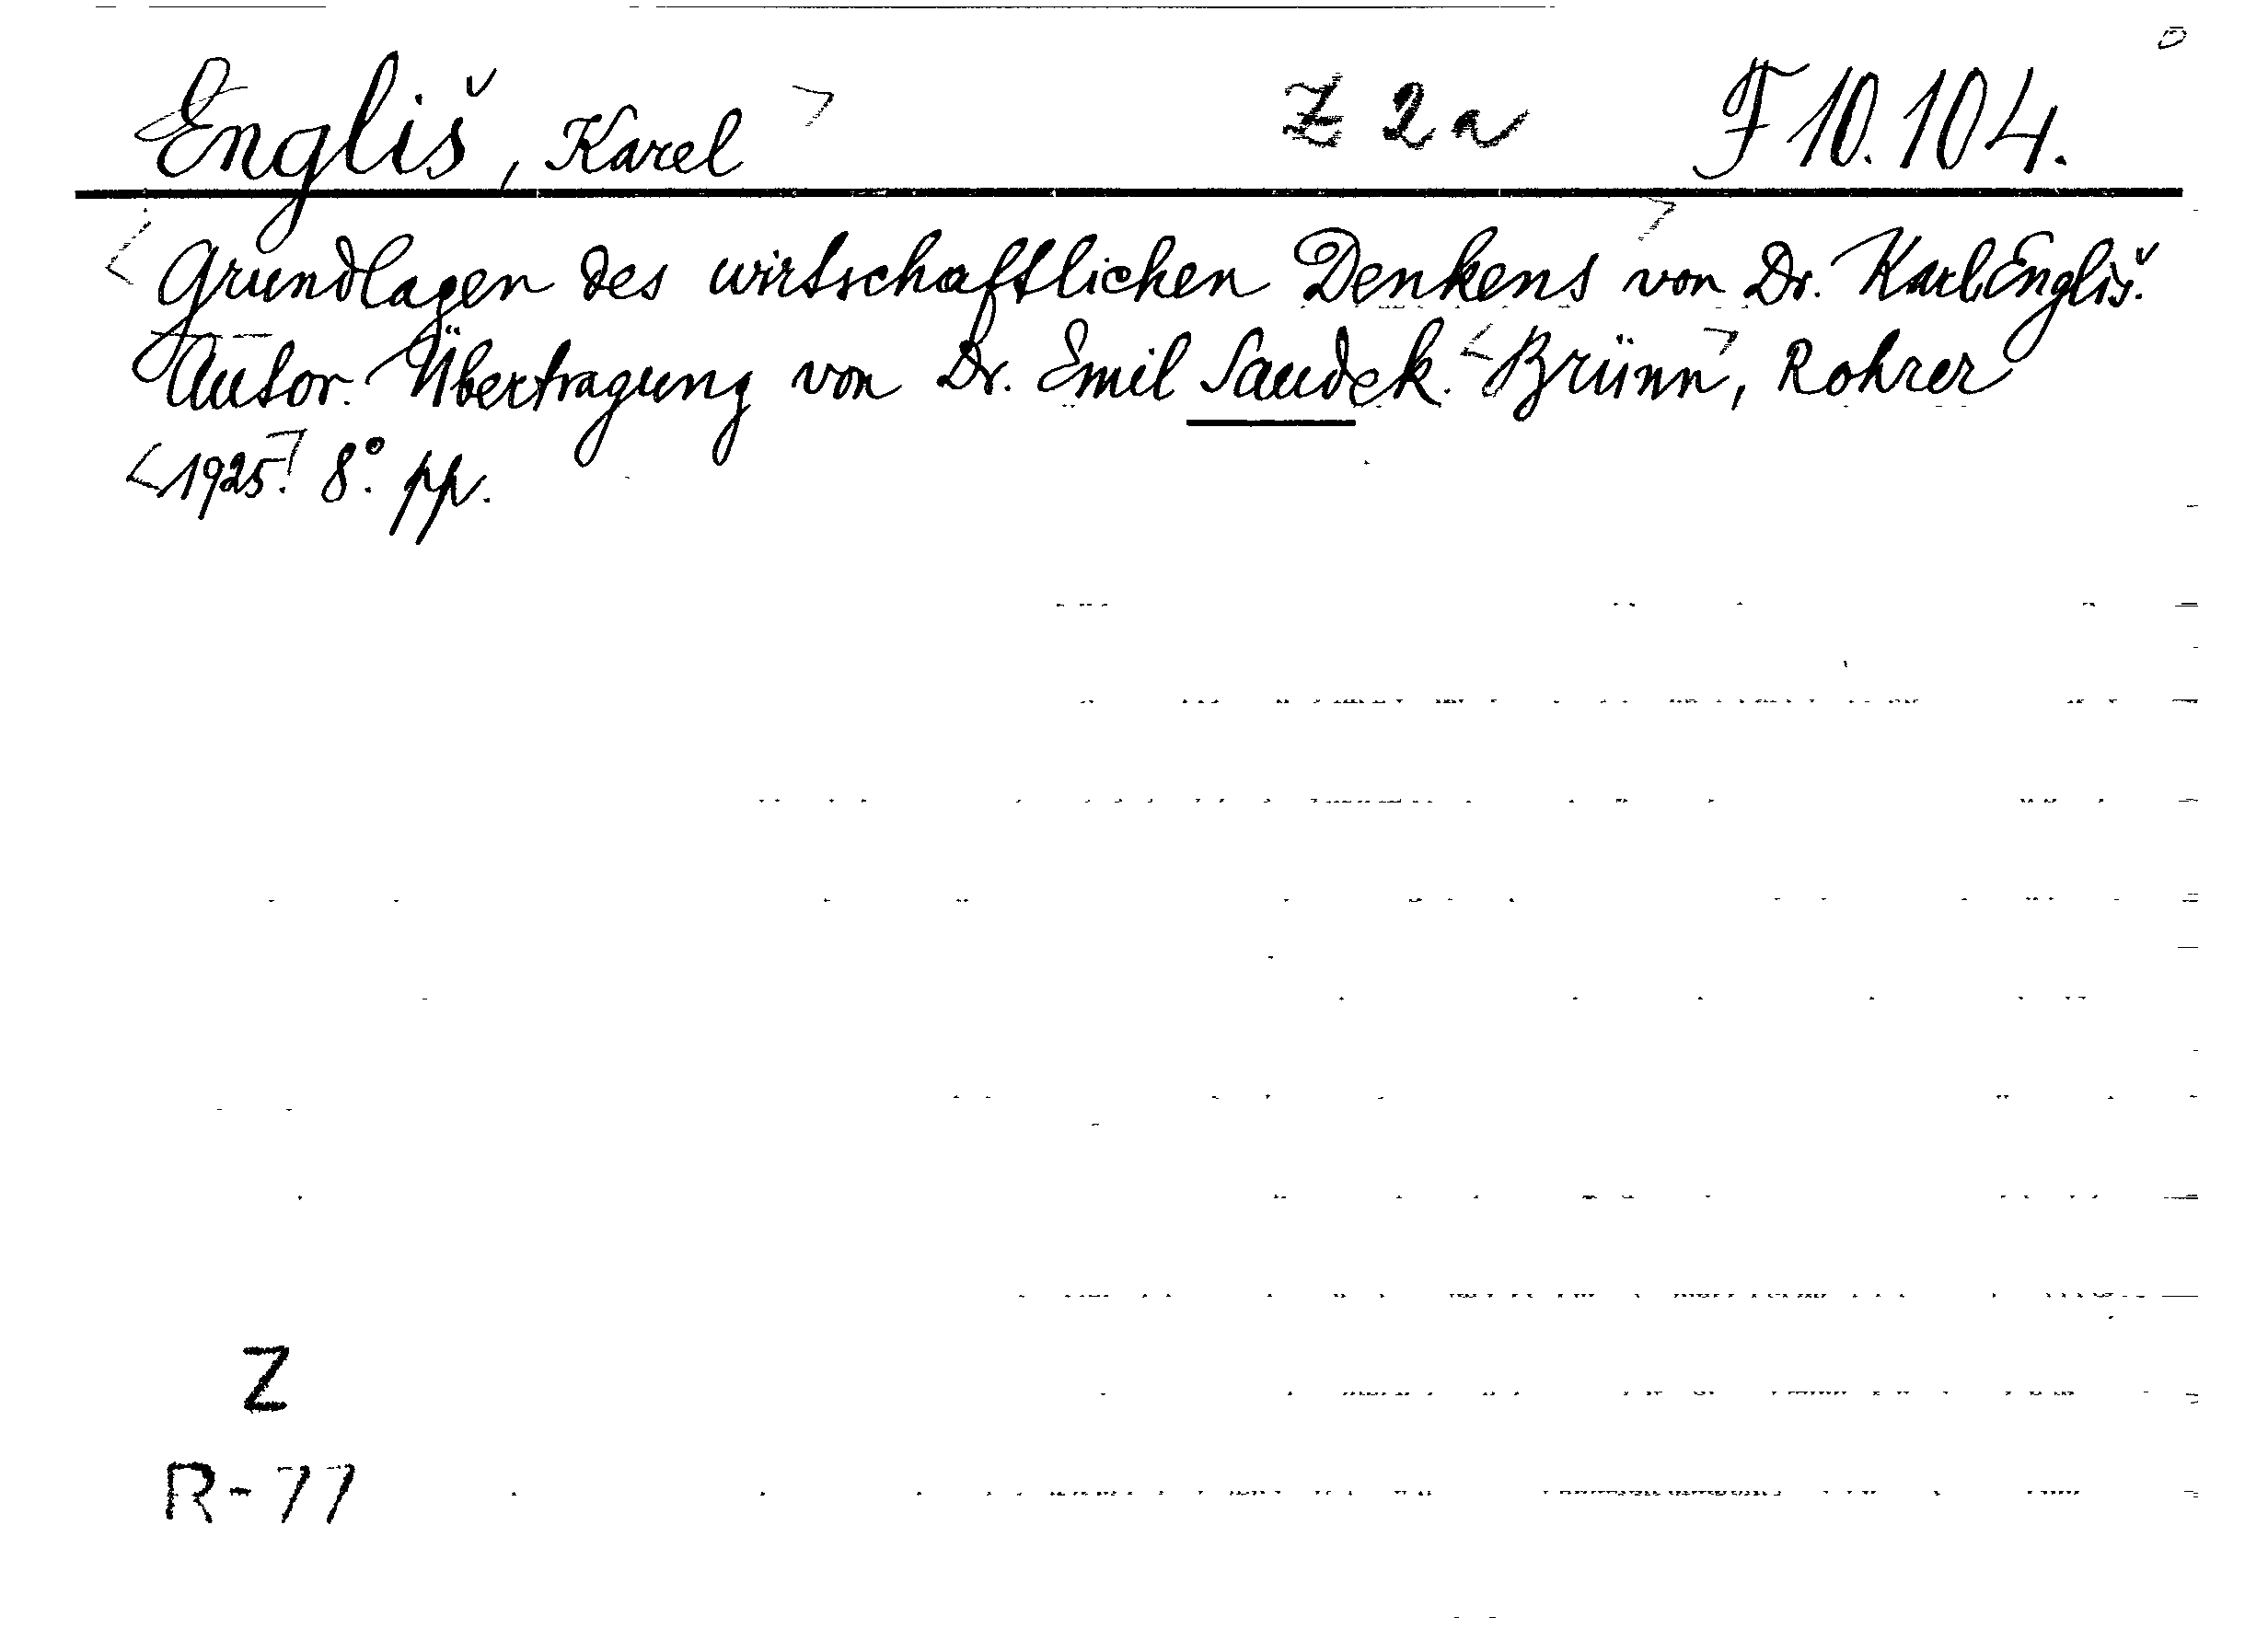 Engliš, Karel Z 2a F 10.104.
Grundlagen des wirtschaftlichen Denkens von Dr. Karl Engliš.
Autor. Übertragung von Dr. Emil Saudek. Brünn, Rohrer
1925. 8°. pp.
Z
R-77